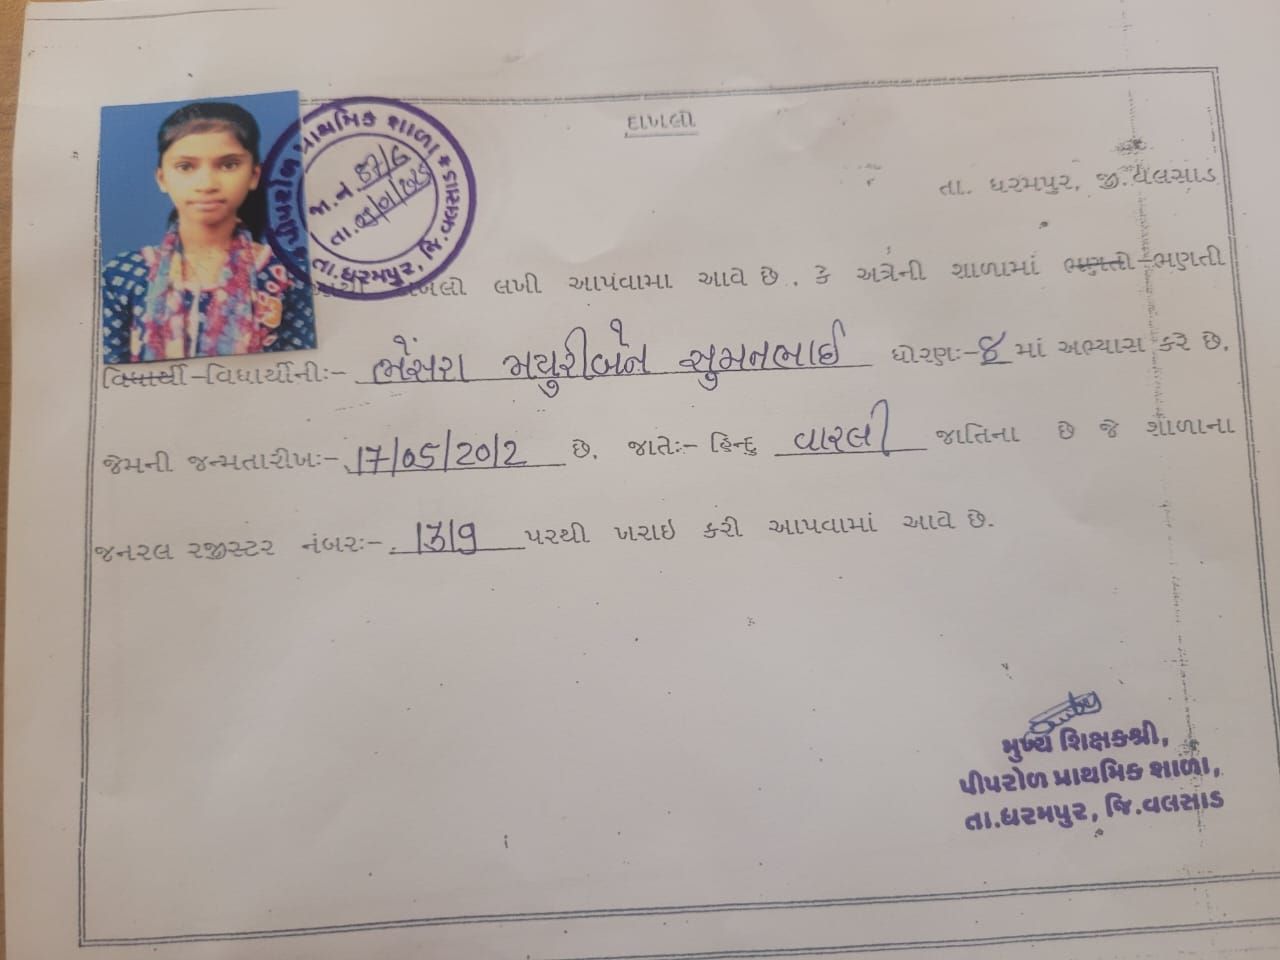 દાખલો
તા. ધરમપુર, જી. વલસાડ
પીપરોળ પ્રાથમિક શાળા
જા.નં
તા.
તા.ધરમપુર, જિ.વલસાડ
લખી આપવામા આવે છે. કે અત્રેની શાળામાં ભણતો-ભણતી
વિધાર્થી-વિધાર્થીનીઃ- ભેંસરા મયુરીબેન સુમનભાઈ ધોરણઃ- માં અભ્યાસ કરે છે.
જેમની જન્મતારીખઃ- 17/05/2012 છે. જાતેઃ- હિન્દુ વારલી જાતિના છે જે શાળાના
જનરલ રજીસ્ટર નંબરઃ- 1319 પરથી ખરાઇ કરી આપવામાં આવે છે.
મુખ્ય શિક્ષકશ્રી,
પીપરોળ પ્રાથમિક શાળા,
તા.ધરમપુર, જિ.વલસાડ